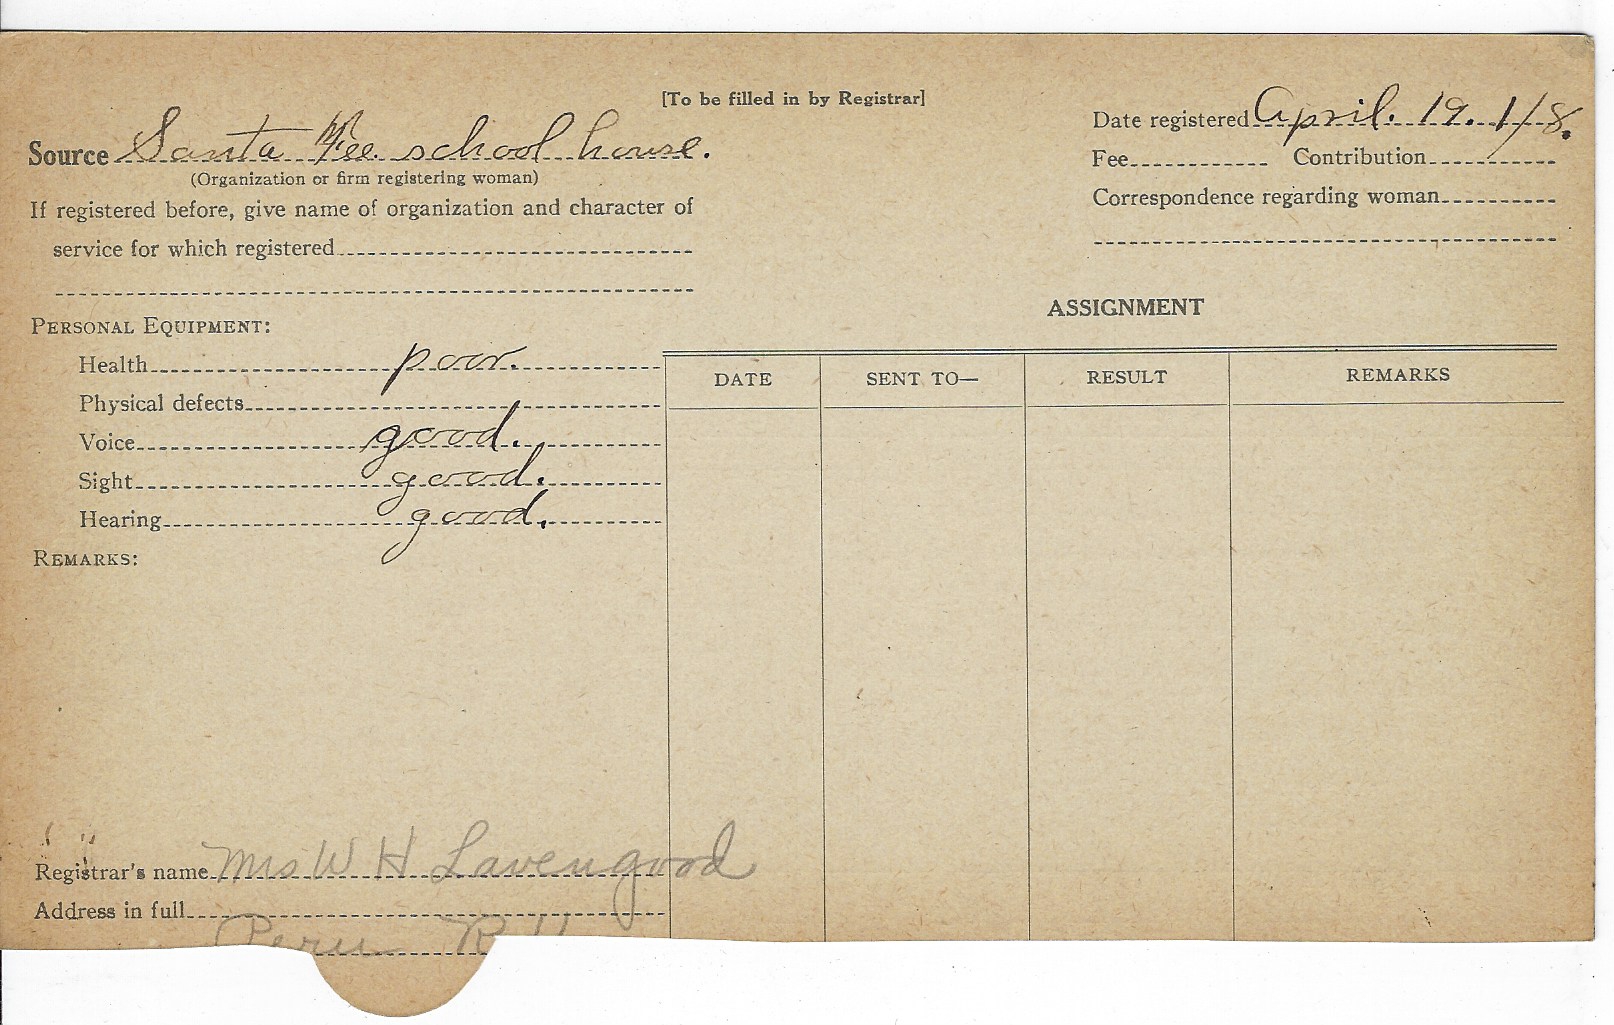 [To be filled in by Registrar]
Source Santa Fee school house.
(Organization or firm registering woman)
If registered before, give name of organization and character of
service for which registered
Date registered April. 19. 1/8.
Fee Contribution
Correspondence regarding woman
PERSONAL EQUIPMENT:
Health poor.
Physical defects
Voice good.
Sight good.
Hearing good.
REMARKS:
ASSIGNMENT
DATE SENT TO— RESULT REMARKS
Registrar's name Mrs W H Lavengood
Address in full
Peru R